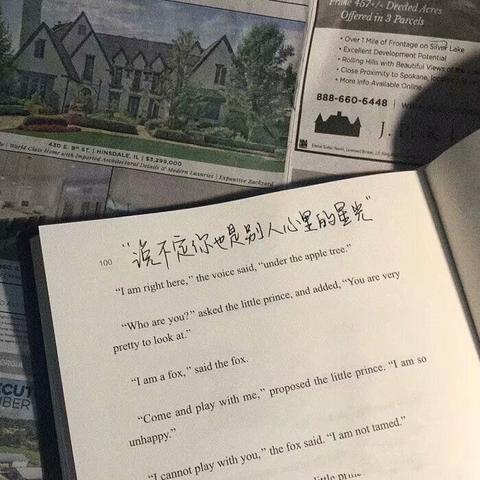 Prime 467+/- Deeded Acres
Offered in 3 Parcels
• Over 1 Mile of Frontage on Silver Lake
• Excellent Development Potential
• Rolling Hills with Beautiful Views of the
• Close Proximity to Spokane,
• More Info Available Online
888-660-6448
430 E. 9th ST. | HINSDALE, IL | $3,299,000
World Class Home with Imported Architectural Details & Modern Luxuries | Expansive Backyard
100
“说不定你也是别人心里的星光”
“I am right here,” the voice said, “under the apple tree.”
“Who are you?” asked the little prince, and added, “You are very
pretty to look at.”
“I am a fox,” said the fox.
“Come and play with me,” proposed the little prince. “I am so
unhappy.”
“I cannot play with you,” the fox said. “I am not tamed.”